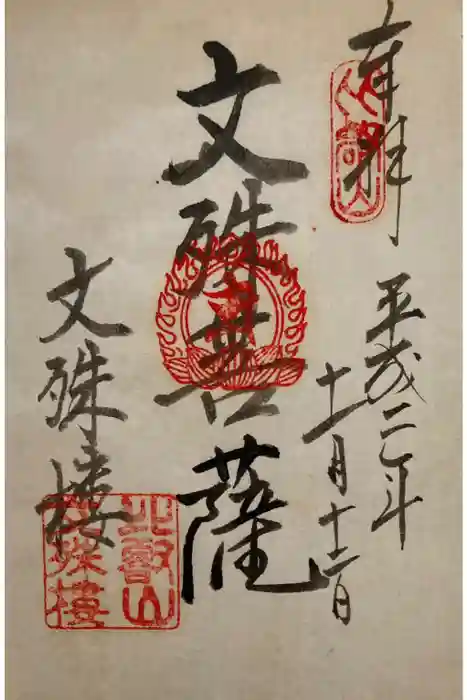 奉拝
平成二年
十一月十二日
文殊菩薩
文殊楼
比叡山
文殊楼